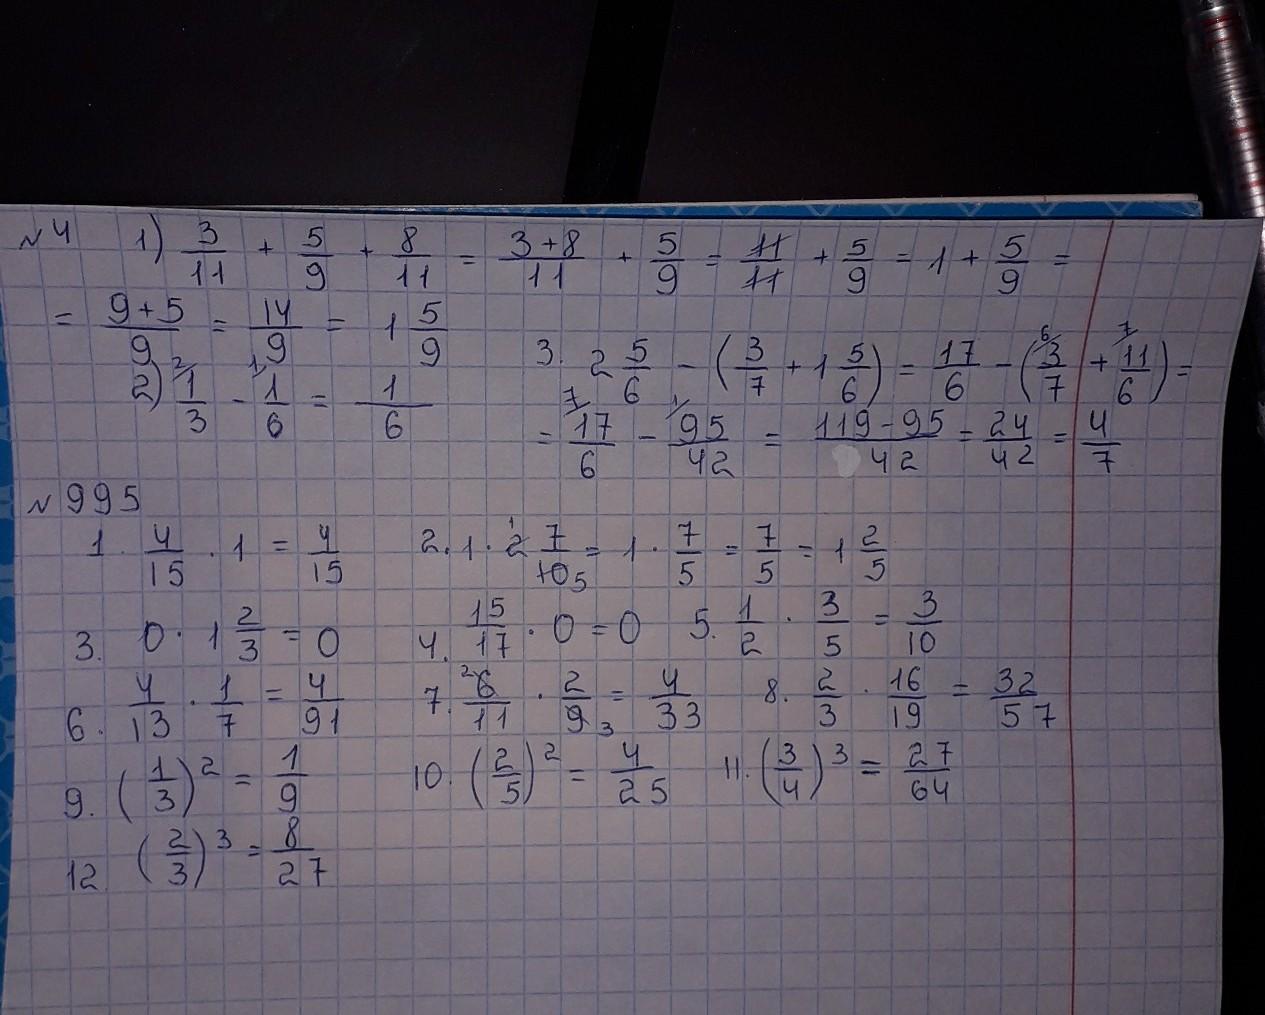 №4 1) 3/11 + 5/9 + 8/11 = (3+8)/11 + 5/9 = 11/11 + 5/9 = 1 + 5/9 =
= (9+5)/9 = 14/9 = 1 5/9
2) 2/ 1/3 - 1/ 1/6 = 1/6
3. 2 5/6 - (3/7 + 1 5/6) = 17/6 - (6/ 3/7 + 7/ 11/6) =
= 7/ 17/6 - 1/ 95/42 = (119-95)/42 = 24/42 = 4/7
№995
1. 4/15 · 1 = 4/15 2. 1 · 1 2 7/10 5 = 1 · 7/5 = 7/5 = 1 2/5
3. 0 · 1 2/3 = 0 4. 15/17 · 0 = 0 5. 1/2 · 3/5 = 3/10
6. 4/13 · 1/7 = 4/91 7. 2 6/11 · 2/9 3 = 4/33 8. 2/3 · 16/19 = 32/57
9. (1/3)² = 1/9 10. (2/5)² = 4/25 11. (3/4)³ = 27/64
12 (2/3)³ = 8/27